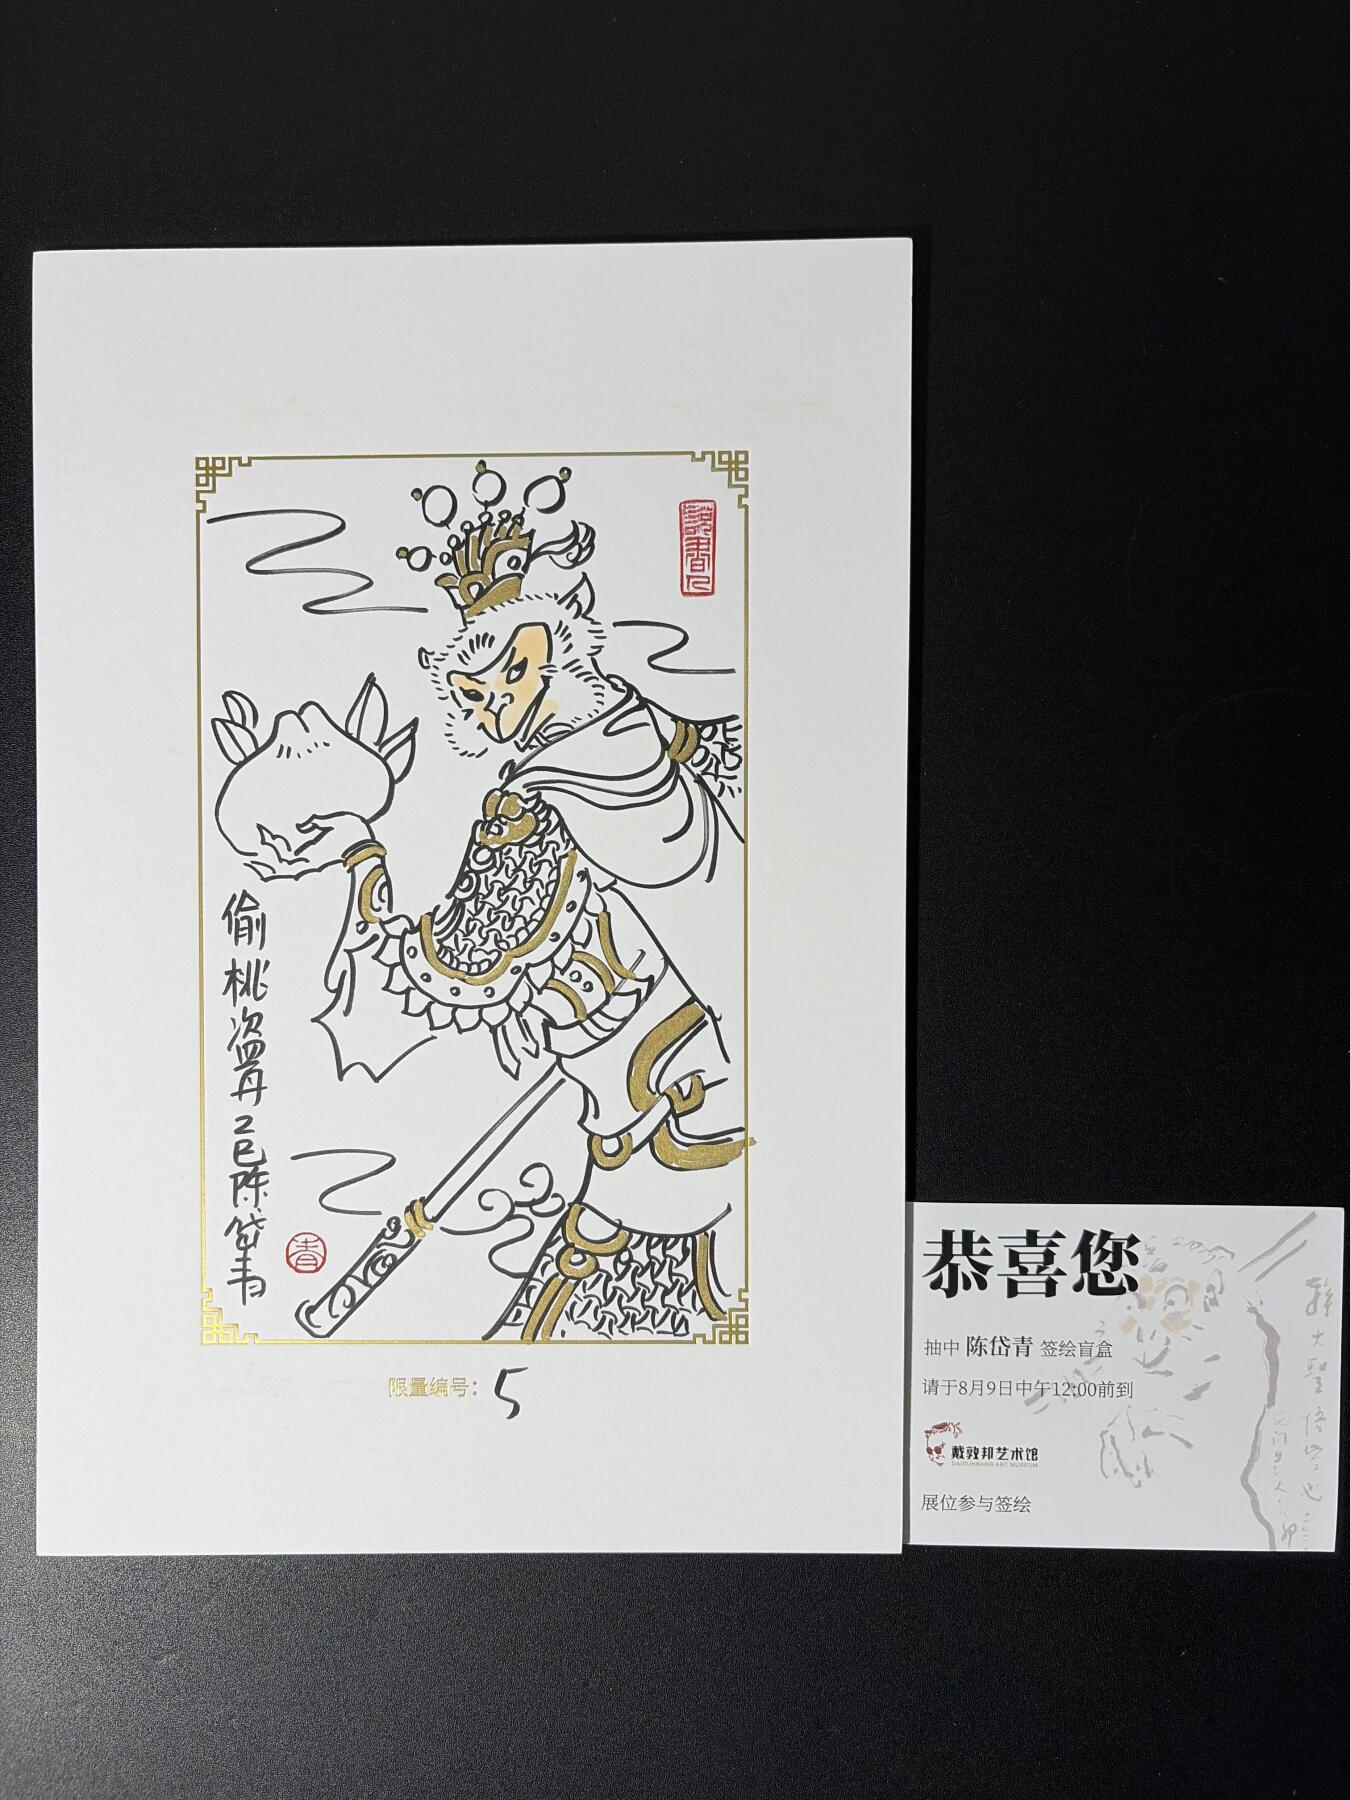 説書人
偷桃盗丹乙巳陈岱青
限量编号：5
恭喜您
抽中 陈岱青 签绘盲盒
请于8月9日中午12:00前到
戴敦邦艺术馆
DAIDUNBANG ART MUSEUM
展位参与签绘
孫大聖悟空也